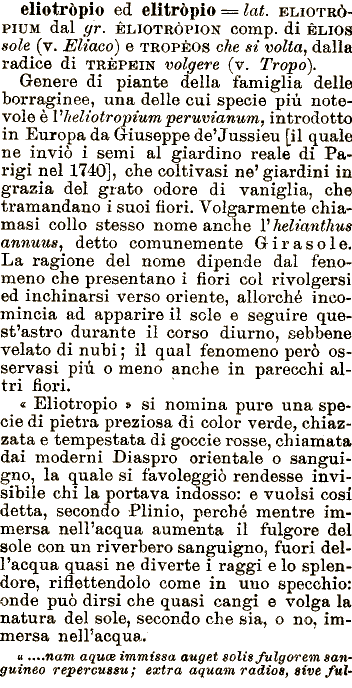 eliotròpio ed elitròpio = lat. ELIOTRÒ-
PIUM dal gr. ÊLIOTRÒPION comp. di ÊLIOS
sole (v. Eliaco) e TROPÈOS che si volta, dalla
radice di TRÈPEIN volgere (v. Tropo).
Genere di piante della famiglia delle
borraginee, una delle cui specie più note-
vole è l'heliotropium peruvianum, introdotto
in Europa da Giuseppe de' Jussieu [il quale
ne inviò i semi al giardino reale di Pa-
rigi nel 1740], che coltivasi ne' giardini in
grazia del grato odore di vaniglia, che
tramandano i suoi fiori. Volgarmente chia-
masi collo stesso nome anche l'helianthus
annuus, detto comunemente Girasole.
La ragione del nome dipende dal feno-
meno che presentano i fiori col rivolgersi
ed inchinarsi verso oriente, allorché inco-
mincia ad apparire il sole e seguire que-
st'astro durante il corso diurno, sebbene
velato di nubi; il qual fenomeno però os-
servasi più o meno anche in parecchi al-
tri fiori.
« Eliotropio » si nomina pure una spe-
cie di pietra preziosa di color verde, chiaz-
zata e tempestata di goccie rosse, chiamata
dai moderni Diaspro orientale o sangui-
gno, la quale si favoleggiò rendesse invi-
sibile chi la portava indosso: e vuolsi così
detta, secondo Plinio, perché mentre im-
mersa nell'acqua aumenta il fulgore del
sole con un riverbero sanguigno, fuori del-
l'acqua quasi ne diverte i raggi e lo splen-
dore, riflettendolo come in uno specchio:
onde può dirsi che quasi cangi e volga la
natura del sole, secondo che sia, o no, im-
mersa nell'acqua.
« ....nam aquæ immissa auget solis fulgorem san-
guineo repercussu; extra aquam radios, sive ful-